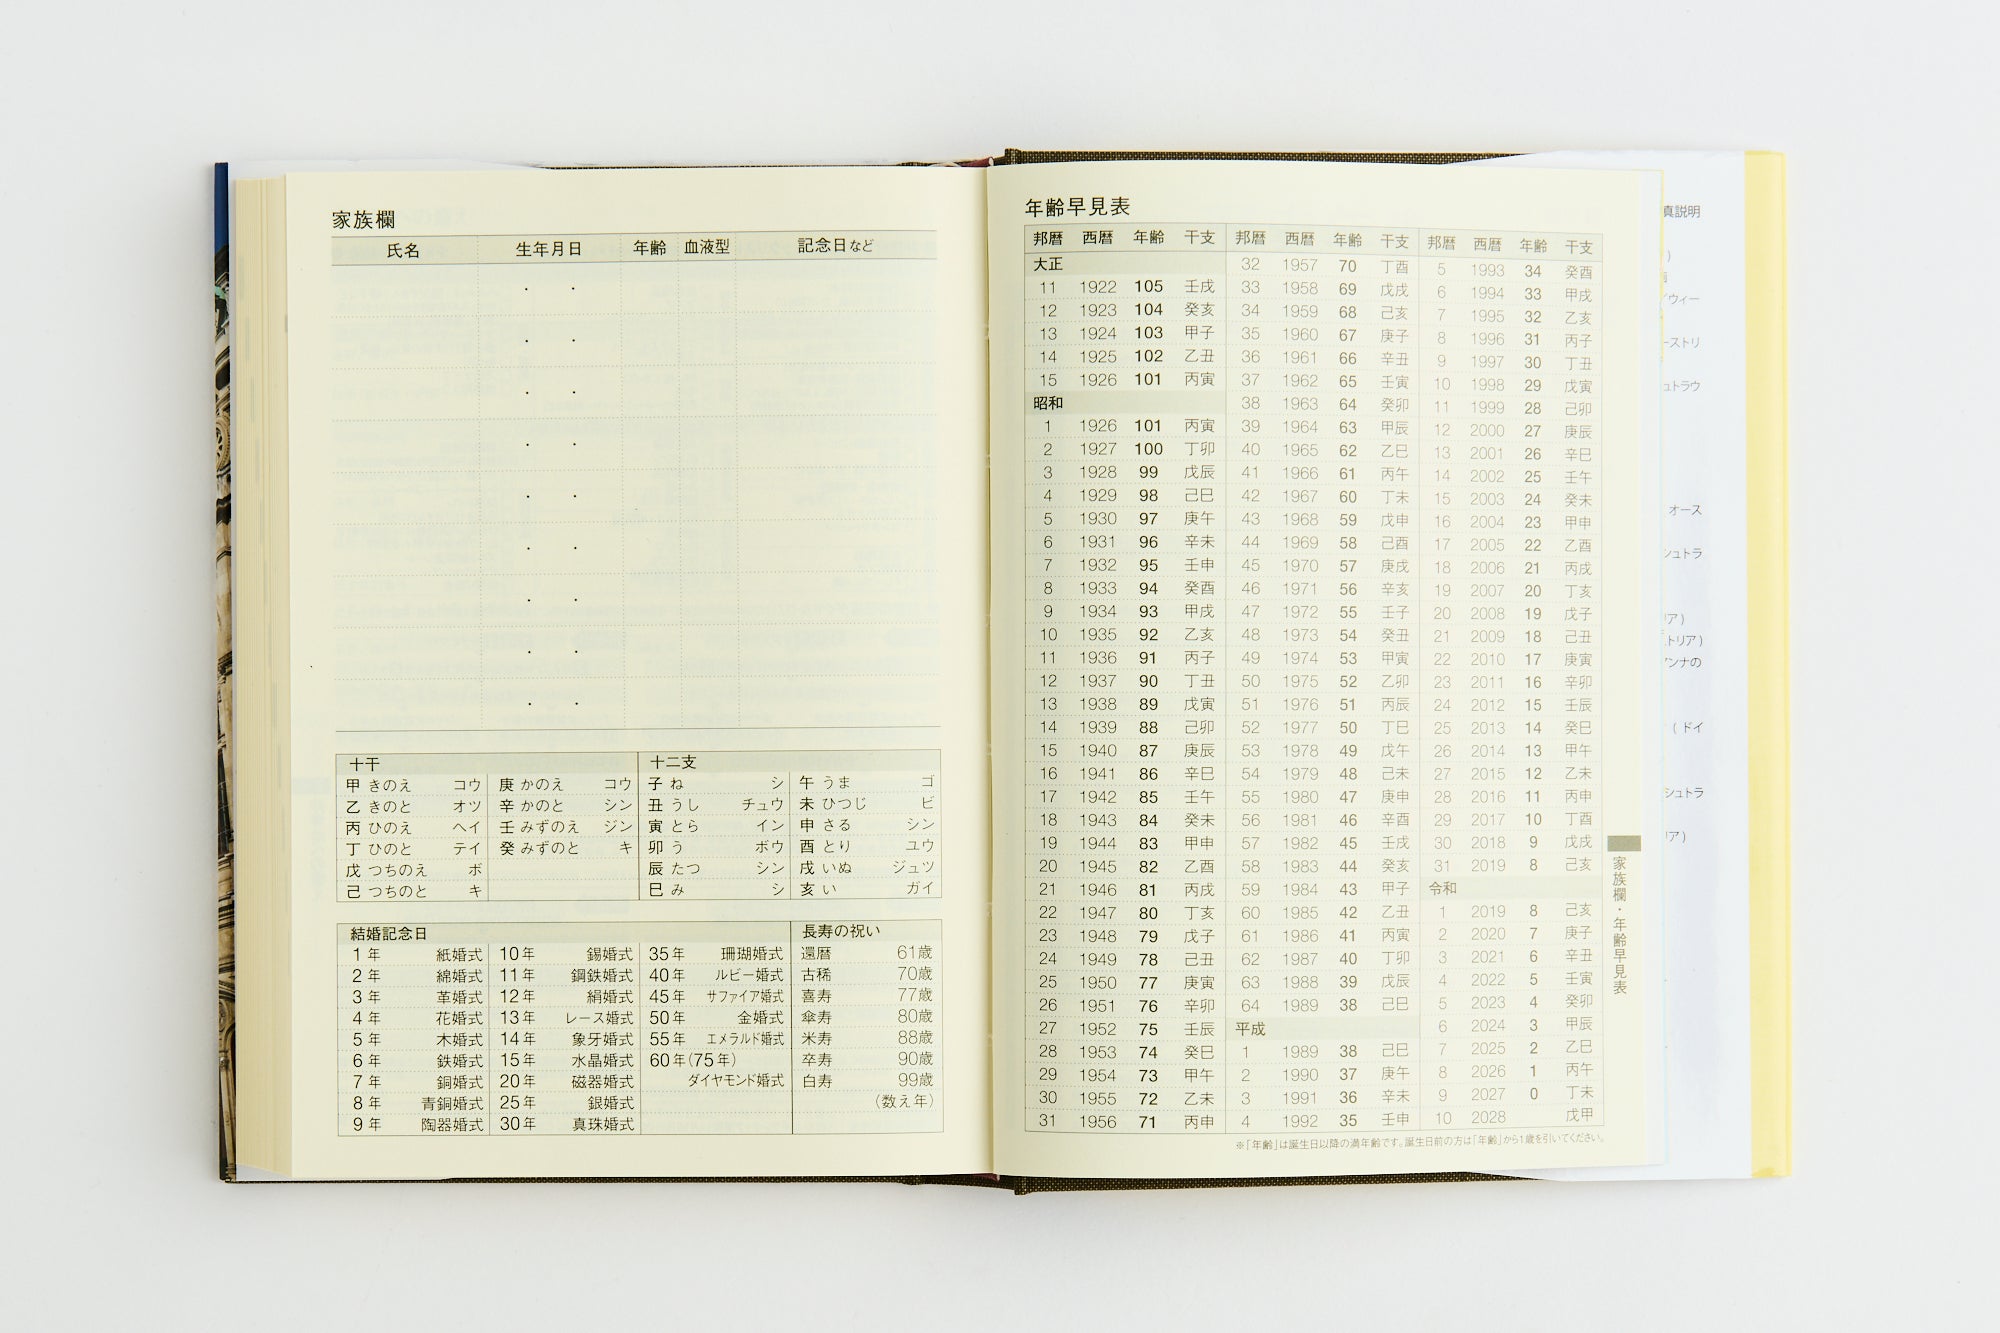 家族欄
氏名 生年月日 年齢 血液型 記念日など
十干 十二支
甲 きのえ コウ 庚 かのえ コウ 子 ね シ 午 うま ゴ
乙 きのと オツ 辛 かのと シン 丑 うし チュウ 未 ひつじ ビ
丙 ひのえ ヘイ 壬 みずのえ ジン 寅 とら イン 申 さる シン
丁 ひのと テイ 癸 みずのと キ 卯 う ボウ 酉 とり ユウ
戊 つちのえ ボ 辰 たつ シン 戌 いぬ ジュツ
己 つちのと キ 巳 み シ 亥 い ガイ
結婚記念日 長寿の祝い
1年 紙婚式 10年 錫婚式 35年 珊瑚婚式 還暦 61歳
2年 綿婚式 11年 鋼鉄婚式 40年 ルビー婚式 古稀 70歳
3年 革婚式 12年 絹婚式 45年 サファイア婚式 喜寿 77歳
4年 花婚式 13年 レース婚式 50年 金婚式 傘寿 80歳
5年 木婚式 14年 象牙婚式 55年 エメラルド婚式 米寿 88歳
6年 鉄婚式 15年 水晶婚式 60年(75年) 卒寿 90歳
7年 銅婚式 20年 磁器婚式 ダイヤモンド婚式 白寿 99歳
8年 青銅婚式 25年 銀婚式 (数え年)
9年 陶器婚式 30年 真珠婚式
年齢早見表
邦暦 西暦 年齢 干支 邦暦 西暦 年齢 干支 邦暦 西暦 年齢 干支
大正 32 1957 70 丁酉 5 1993 34 癸酉
11 1922 105 壬戌 33 1958 69 戊戌 6 1994 33 甲戌
12 1923 104 癸亥 34 1959 68 己亥 7 1995 32 乙亥
13 1924 103 甲子 35 1960 67 庚子 8 1996 31 丙子
14 1925 102 乙丑 36 1961 66 辛丑 9 1997 30 丁丑
15 1926 101 丙寅 37 1962 65 壬寅 10 1998 29 戊寅
昭和 38 1963 64 癸卯 11 1999 28 己卯
1 1926 101 丙寅 39 1964 63 甲辰 12 2000 27 庚辰
2 1927 100 丁卯 40 1965 62 乙巳 13 2001 26 辛巳
3 1928 99 戊辰 41 1966 61 丙午 14 2002 25 壬午
4 1929 98 己巳 42 1967 60 丁未 15 2003 24 癸未
5 1930 97 庚午 43 1968 59 戊申 16 2004 23 甲申
6 1931 96 辛未 44 1969 58 己酉 17 2005 22 乙酉
7 1932 95 壬申 45 1970 57 庚戌 18 2006 21 丙戌
8 1933 94 癸酉 46 1971 56 辛亥 19 2007 20 丁亥
9 1934 93 甲戌 47 1972 55 壬子 20 2008 19 戊子
10 1935 92 乙亥 48 1973 54 癸丑 21 2009 18 己丑
11 1936 91 丙子 49 1974 53 甲寅 22 2010 17 庚寅
12 1937 90 丁丑 50 1975 52 乙卯 23 2011 16 辛卯
13 1938 89 戊寅 51 1976 51 丙辰 24 2012 15 壬辰
14 1939 88 己卯 52 1977 50 丁巳 25 2013 14 癸巳
15 1940 87 庚辰 53 1978 49 戊午 26 2014 13 甲午
16 1941 86 辛巳 54 1979 48 己未 27 2015 12 乙未
17 1942 85 壬午 55 1980 47 庚申 28 2016 11 丙申
18 1943 84 癸未 56 1981 46 辛酉 29 2017 10 丁酉
19 1944 83 甲申 57 1982 45 壬戌 30 2018 9 戊戌
20 1945 82 乙酉 58 1983 44 癸亥 31 2019 8 己亥
21 1946 81 丙戌 59 1984 43 甲子 令和
22 1947 80 丁亥 60 1985 42 乙丑 1 2019 8 己亥
23 1948 79 戊子 61 1986 41 丙寅 2 2020 7 庚子
24 1949 78 己丑 62 1987 40 丁卯 3 2021 6 辛丑
25 1950 77 庚寅 63 1988 39 戊辰 4 2022 5 壬寅
26 1951 76 辛卯 64 1989 38 己巳 5 2023 4 癸卯
27 1952 75 壬辰 平成 6 2024 3 甲辰
28 1953 74 癸巳 1 1989 38 己巳 7 2025 2 乙巳
29 1954 73 甲午 2 1990 37 庚午 8 2026 1 丙午
30 1955 72 乙未 3 1991 36 辛未 9 2027 0 丁未
31 1956 71 丙申 4 1992 35 壬申 10 2028 戊申
※「年齢」は誕生日以降の満年齢です。誕生日前の方は「年齢」から1歳を引いてください。
家族欄・年齢早見表
真説明
イウィー
ーストリ
ュトラウ
オース
シュトラ
リア)
トリア)
アンナの
(ドイ
シュトラ
リア)